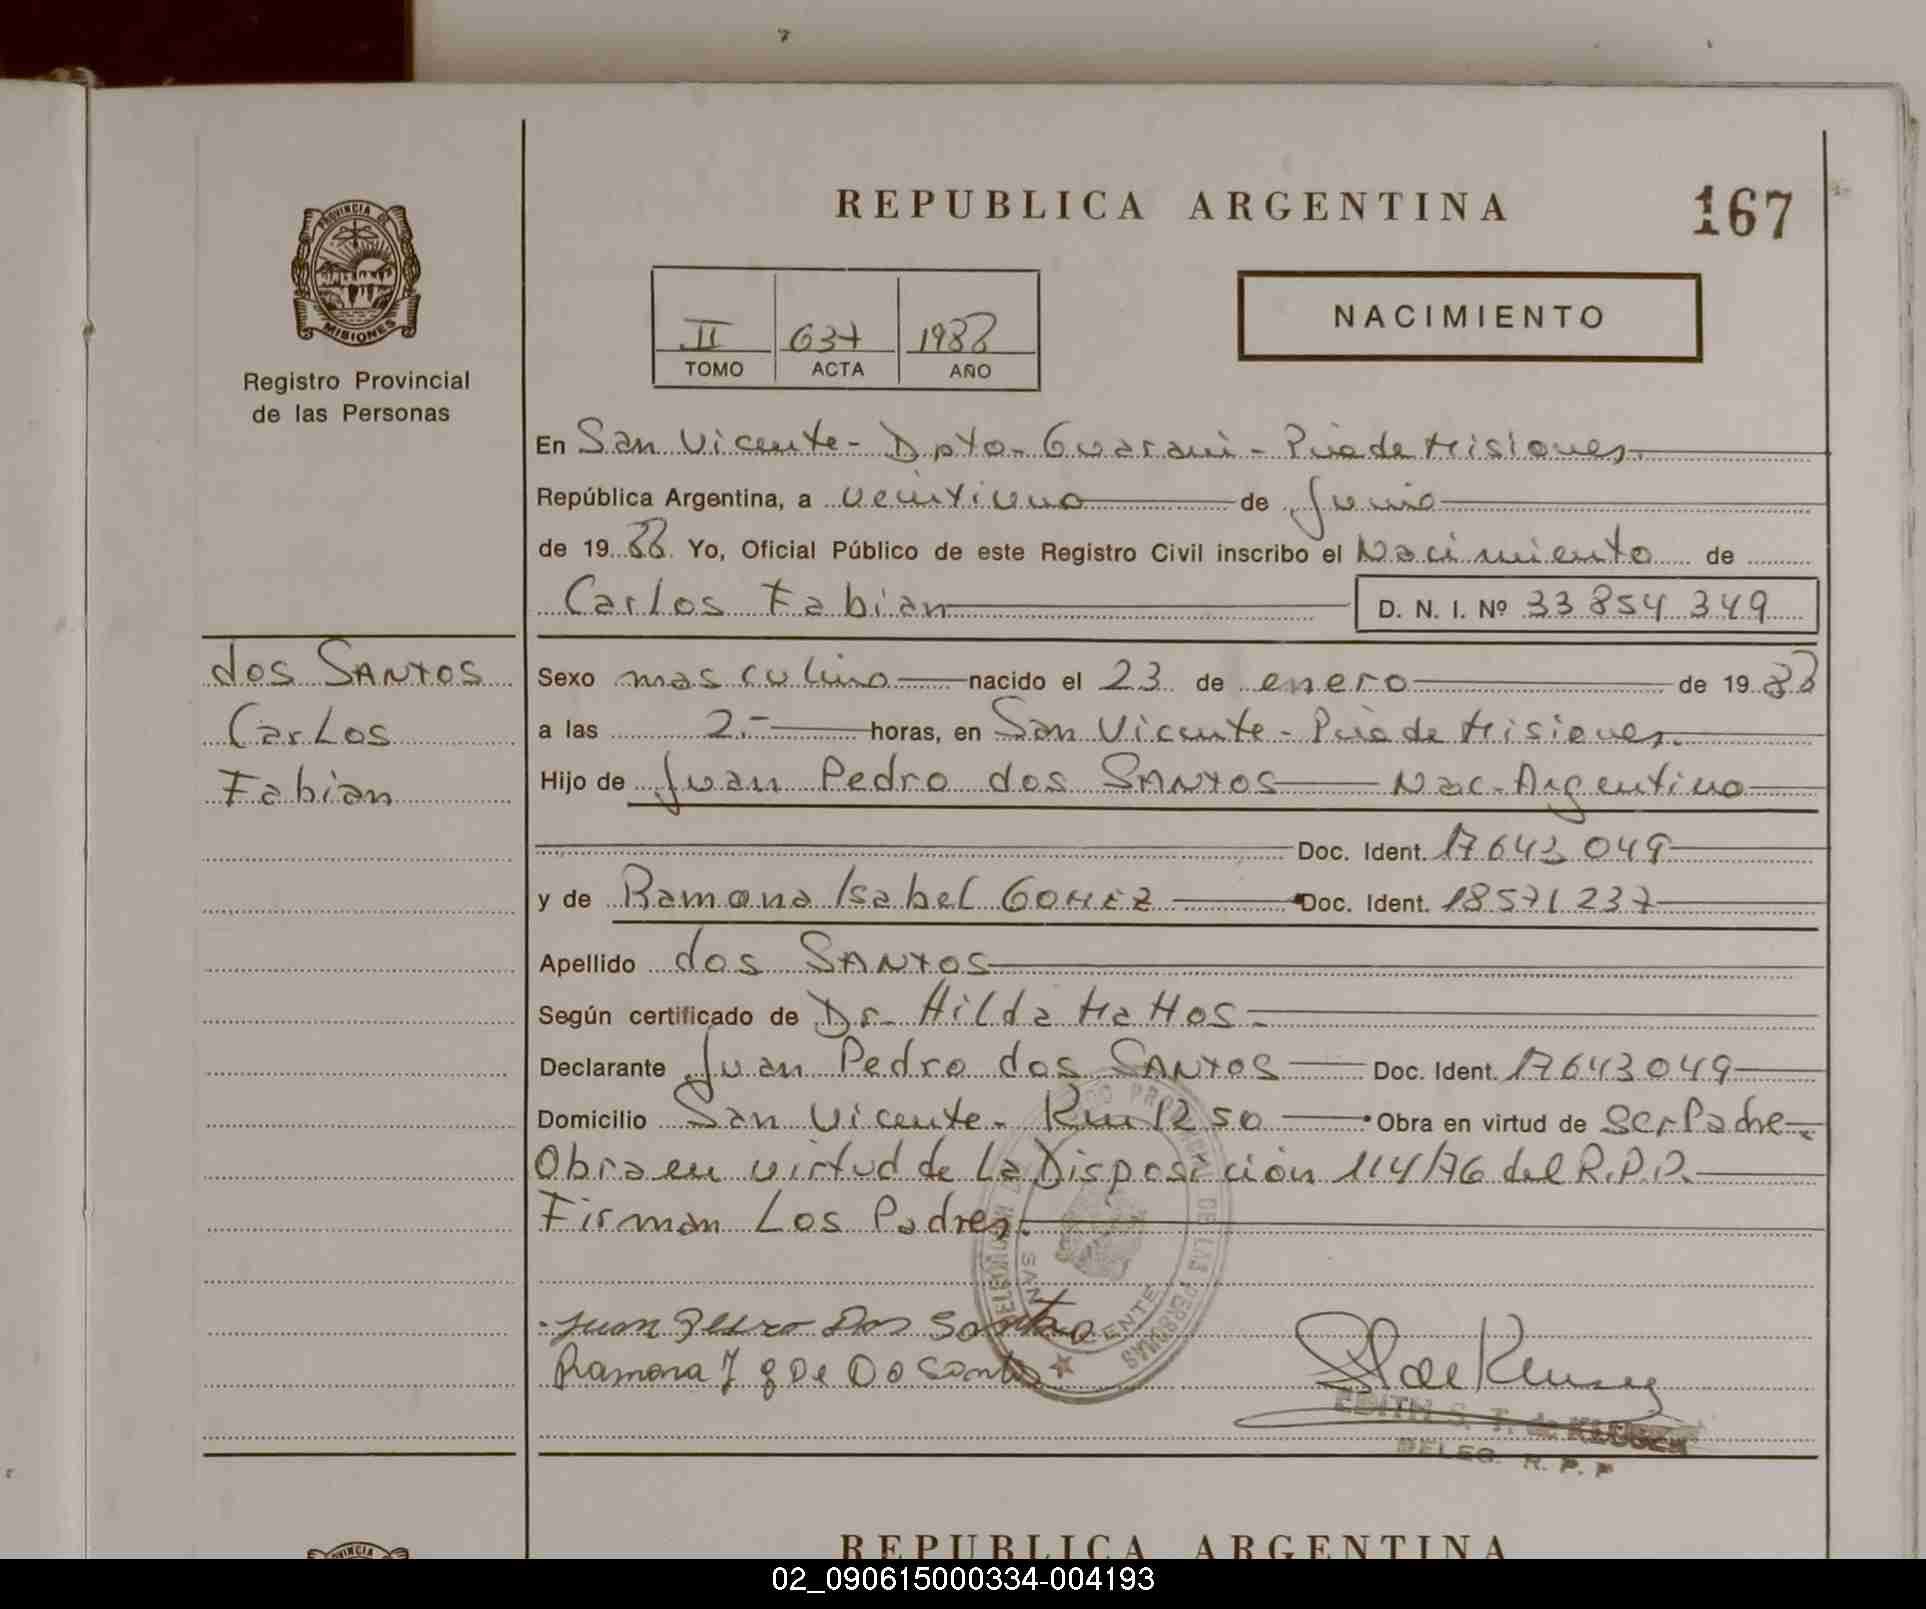 REPUBLICA ARGENTINA
167
PROVINCIA DE
MISIONES
Registro Provincial
de las Personas
II 637 1988
TOMO ACTA AÑO
NACIMIENTO
En San Vicente - Dpto. Guaraní - Pcia de Misiones.
República Argentina, a veintiuno de Junio
de 1988 Yo, Oficial Público de este Registro Civil inscribo el Nacimiento de
Carlos Fabian D. N. I. Nº 33 854 349
dos SANTOS
Carlos
Fabian
Sexo masculino nacido el 23 de enero de 1988
a las 2.- horas, en San Vicente - Pcia de Misiones.
Hijo de Juan Pedro dos SANTOS Nac. Argentino
Doc. Ident. 17643049
y de Ramona Isabel GOMEZ Doc. Ident. 18571237
Apellido dos SANTOS
Según certificado de Dr. Hilda Mattos.
Declarante Juan Pedro dos SANTOS Doc. Ident. 17643049
Domicilio San Vicente. Km 1250 Obra en virtud de Ser Padre.
Obra en virtud de La Disposición 114/76 del R.P.P.
Firman Los Padres.
Juan Pedro Dos Santo
Ramona I g De Do Santo
EDITH S. T. de
DELEG. R. P. P
REPUBLICA ARGENTINA
02_090615000334-004193